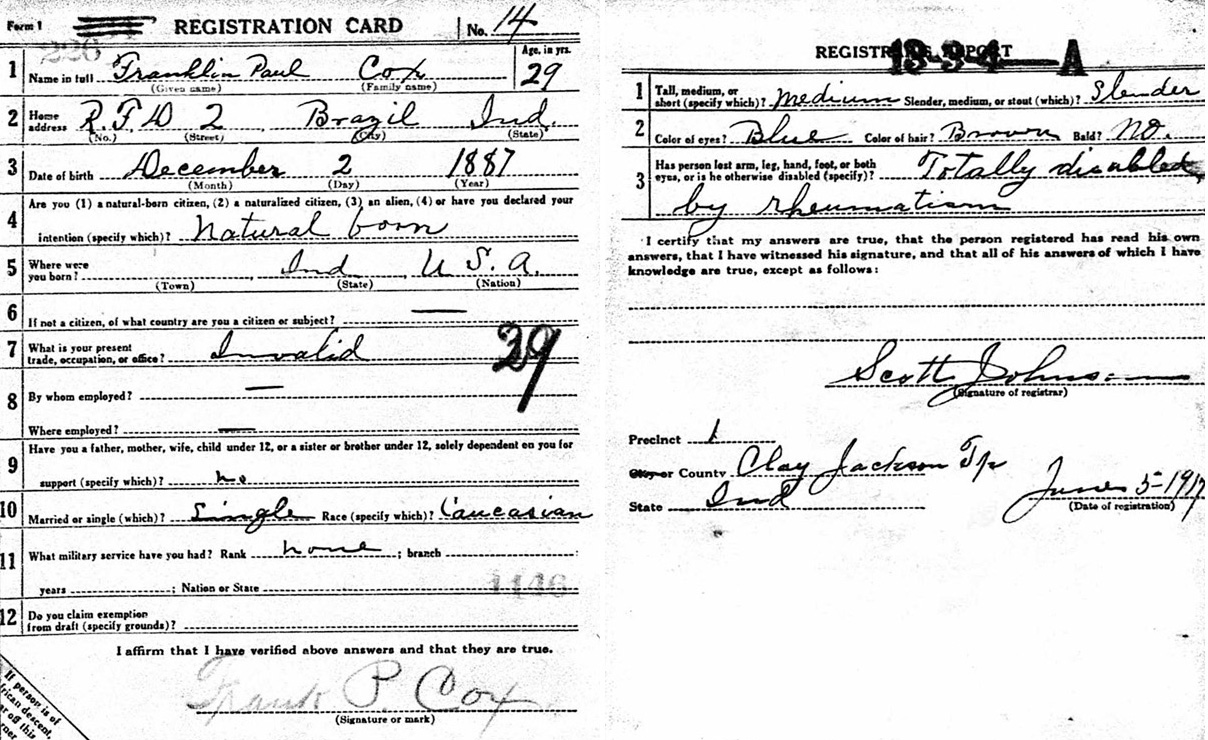 Form 1 REGISTRATION CARD No. 14
226
1 Name in full Franklin Paul Cox Age, in yrs. 29
(Given name) (Family name)
2 Home address R.F.D 2 Brazil Ind.
(No.) (Street) (City) (State)
3 Date of birth December 2 1887
(Month) (Day) (Year)
Are you (1) a natural-born citizen, (2) a naturalized citizen, (3) an alien, (4) or have you declared your
4 intention (specify which)? Natural born
5 Where were you born? Ind U.S.A.
(Town) (State) (Nation)
6 If not a citizen, of what country are you a citizen or subject? —
7 What is your present trade, occupation, or office? Invalid 29
8 By whom employed? —
Where employed? —
9 Have you a father, mother, wife, child under 12, or a sister or brother under 12, solely dependent on you for
support (specify which)? no
10 Married or single (which)? Single Race (specify which)? Caucasian
11 What military service have you had? Rank none ; branch
years ; Nation or State 1146
12 Do you claim exemption from draft (specify grounds)?
I affirm that I have verified above answers and that they are true.
Frank P. Cox
(Signature or mark)
If person is of
African descent,
off this
corner
13-9-4 A
1 Tall, medium, or short (specify which)? Medium Slender, medium, or stout (which)? Slender
2 Color of eyes? Blue Color of hair? Brown Bald? No.
3 Has person lost arm, leg, hand, foot, or both eyes, or is he otherwise disabled (specify)? Totally disabled,
by rheumatism
I certify that my answers are true, that the person registered has read his own
answers, that I have witnessed his signature, and that all of his answers of which I have
knowledge are true, except as follows:
Scott Johnson
(Signature of registrar)
Precinct 1
City or County Clay Jackson Tp
State Ind June 5-1917
(Date of registration)